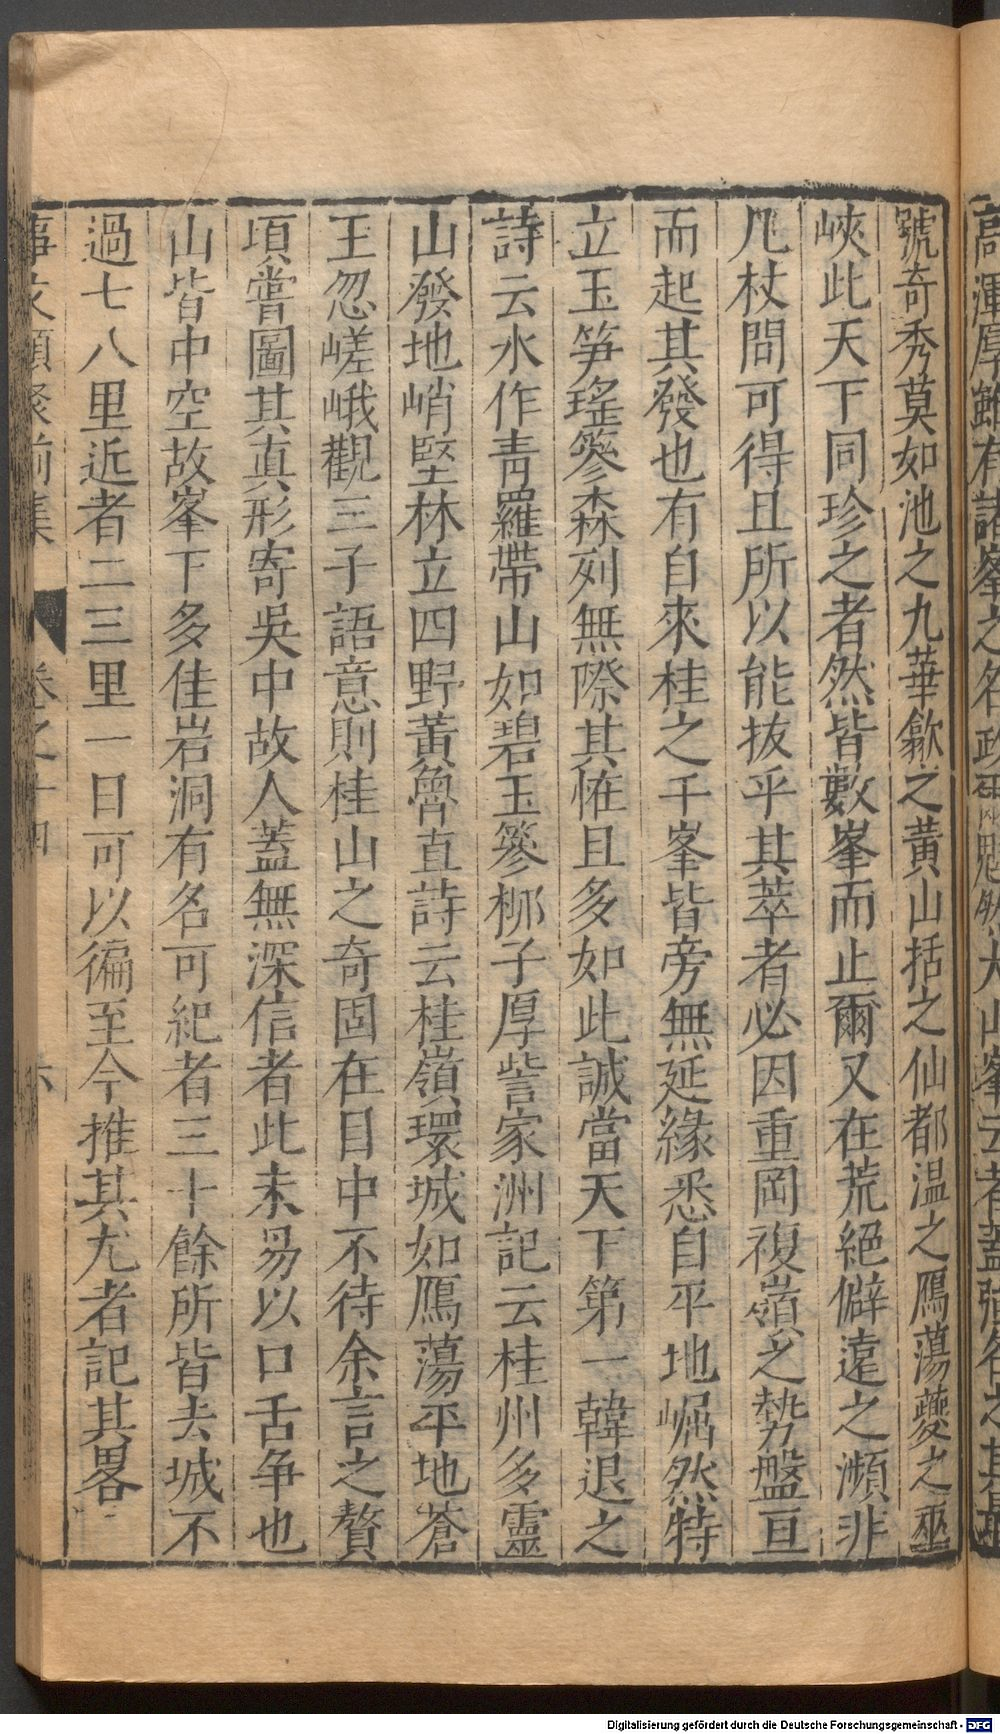 號奇秀莫如池之九華歙之黃山括之仙都温之鴈蕩夔之巫
峽此天下同珍之者然皆數峯而止爾又在荒絕僻遠之瀕非
几杖間可得且所以能拔乎其萃者必因重岡複嶺之勢盤亘
而起其發也有自來桂之千峯皆旁無延緣悉自平地崛然特
立玉笋瑤篸森列無際其恠且多如此誠當天下第一韓退之
詩云水作青羅帶山如碧玉篸栁子厚訾家洲記云桂州多靈
山潑地峭竪林立四野黃魯直詩云桂嶺環城如鴈蕩平地蒼
玉忽嵯峨觀三子語意則桂山之奇固在目中不待余言之贅
頃嘗圖其真形寄吳中故人蓋無深信者此未易以口舌争也
山皆中空故峯下多佳岩洞有名可紀者三十餘所皆去城不
過七八里近者二三里一日可以徧至今推其尤者記其畧
事文類聚前集 卷之十四 六
高渾厚雖有諸峯之名政爾魁然大山峯云者蓋強名之其最
Digitalisierung gefördert durch die Deutsche Forschungsgemeinschaft - DFG